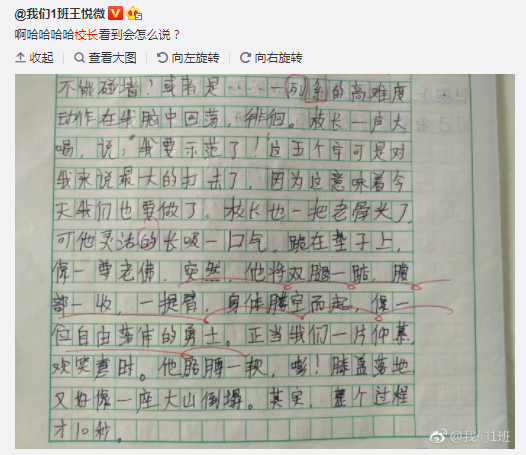 @我们1班王悦微
啊哈哈哈哈校长看到会怎么说？
收起 查看大图 向左旋转 向右旋转
不能碰墙？或者是……一系列的高难度
动作在我脑中回荡，徘徊。校长一声大
喝，说：“我要示范了！”这五个字可是对
我来说最大的打击了，因为这意味着今
天我们也要做了。校长也一把老骨头了，
可他灵活的长吸一口气，跪在垫子上，
像一尊老佛，突然，他将双腿一踮，腹
部一收，一提臂，身体腾空而起，像一
位自由落体的勇士。正当我们一片仰慕
欢笑声时。他胳膊一软，嘭！膝盖落地
又好像一座大山倒塌。其实，整个过程
才10秒。
@我们1班